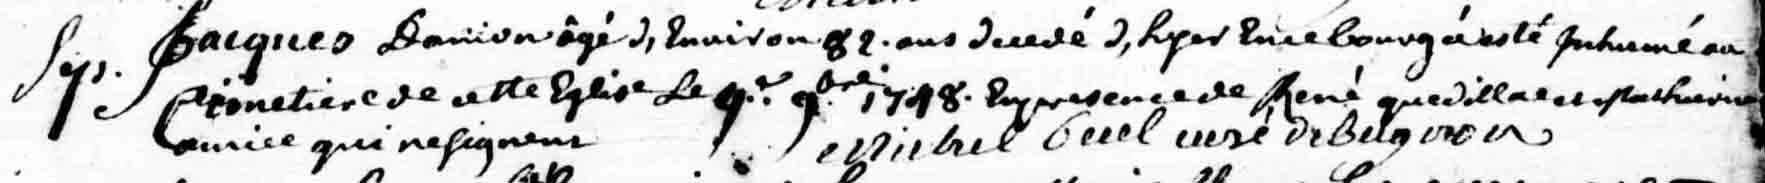 Sep. Jacques Danion âgé d, Environ 82. ans decedé d, hyer En ce bourg a esté Inhumé au
Cimetiere de cette Eglise Le 4.e 9.bre 1748. En presence de René quedillac et Mathurin
amice qui ne signent Michel curé de